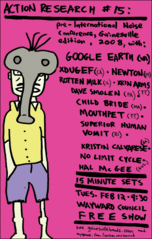 ACTION RESEARCH #15:
pre-International Noise
Conference, Gainesville
edition, 2008, with:
GOOGLE EARTH
XDUGEF · NEWTON
ROTTEN MILK · XEIN ARMS
DAVE SMOLEN
CHILD BRIDE
MOUTHPET
SUPERIOR HUMAN
VOMIT
KRISTIN
NO LIMIT CYCLE
HAL McGEE
15 MINUTE SETS
TUES. FEB 12 · 9:30
WAYWARD COUNCIL
FREE SHOW